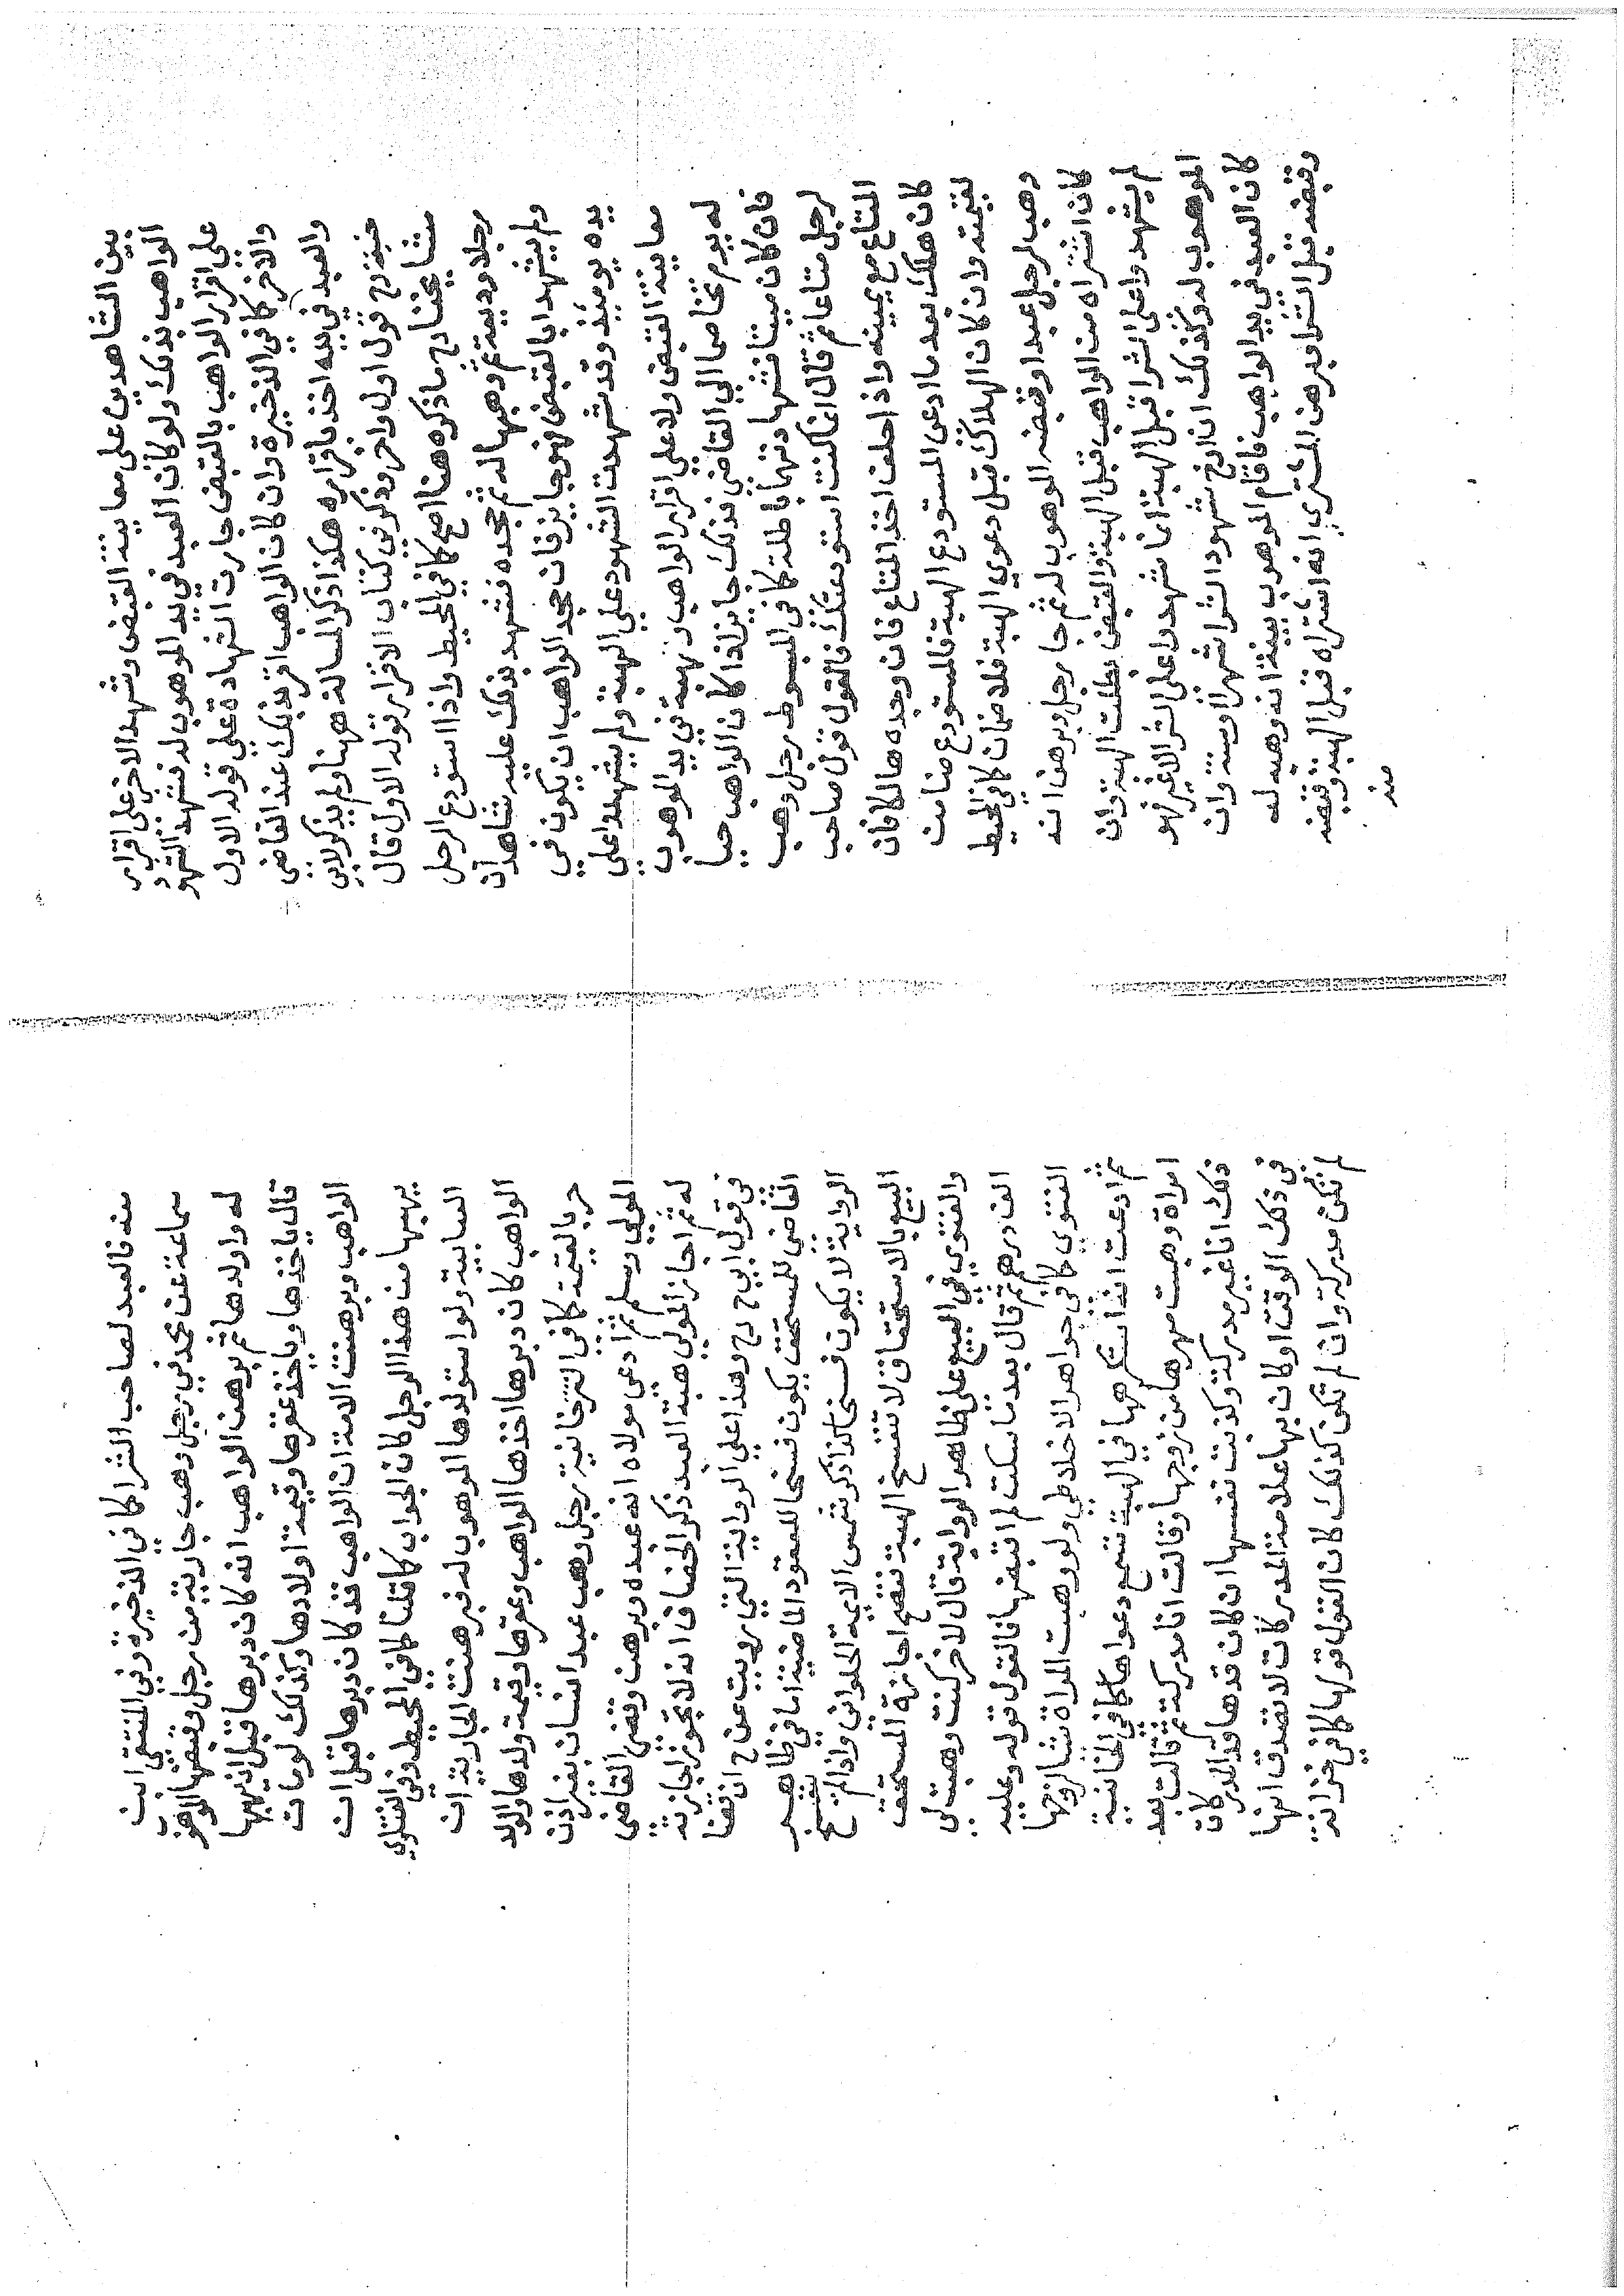 بين الشاهدين على معاينة القبض وشهد الاخر على اقرار
الواهب بذلك ولو كان العبد في يد الموهوب له فشهد الشهود
علي اقرار الواهب بالقبض جازت الشهادة علي قوله الاول
والاخر كافي الذخيرة وان كان الواهب اقر بذلك عند القاضي
والعبد في يده اخذ باقراره هكذا ذكر المسالة ههنا ولم يذكر لابي
حنيفة رح قول اول واخر وذكر في كتاب الاقرار قوله الاول قال
مشايخنا رح ما ذكره هنا اصح كافي المحيط واذا استودع الرجل
رجلا وديعة ثم وهبها له ثم جحده فشهد بذلك عليه شاهدان
ولم يشهدا بالقبض فهو جايز فان جحد الواهب ان يكون في
يده يوميذ وقد شهدت الشهود على الهبة ولم يشهدوا على
معاينة القبض ولا على اقرار الواهب والهبة في يد الموهوب
له يوم تخاصما الي القاضي فذلك جايز اذا كان الواهب حيا
فان كان ميتا فشهادتهما باطلة كافي المبسوط رجل وهب
لرجل متاعا ثم قال انما كنت استودعتك فالقول قول صاحب
المتاع مع يمينه واذا حلف اخذ المتاع فان وجده هالكا فان
كان هلك بعد ما ادعى المستودع الهبة فالمستودع ضامن
لقيمته وان كان الهلاك قبل دعوي الهبة فلا ضمان كافي المحيط
وهب لرجل عبدا وقبضه الموهوب له ثم جا رجل وبرهن انه
كان اشتراه من الواهب قبل الهبة والقبض بطلت الهبة وان
لم يشهدوا على الشرا قبل الهبة انما شهدوا على الشرا لا غير فهو
الموهوب له وكذلك ان ارخ شهود الشرا شهرا او سنة وان
كان العبد في يد الواهب فاقام الموهوب بينة انه وهبه له
وقبضه قبل الشرا وبرهن المشتري انه اشتراه قبل الهبة وقبضه
منه
منه فالعبد لصاحب الشرا كافي الذخيرة وفي المنتقى ابن
سماعة عن محمد في رجل وهب جارية من رجل وقبضها الموهوب
له واولدها ثم برهن الواهب انه كان دبرها قبل ان يهبها
قال ياخذها وياخذ عقرها وقيمة اولادها وكذلك لو مات
الواهب وبرهنت الامة ان الواهب قد كان دبرها قبل ان
يهبها من هذا الرجل كان الجواب كما قلنا كافي المحيط وفي الفتاوي
العتابية ولو استولدها الموهوب له فبرهنت الجارية ان
الواهب كان دبرها اخذها الواهب وعقرها وقيمة ولدها والولد
حر بالقيمة كافي التترخانية رجل وهب عبد انسان بغير اذن
المولي وسلم ثم ادعى مولاه انه عبده وبرهن وقضي القاضي
له ثم اجاز المولي هبة العبد ذكر الخصاف انه لا تجوز اجازته
في قول ابي ح رح وهذا علي الرواية التي رويت عن ح ان قضا
القاضي للمستحق يكون فسخا للعقود الماضية اما في ظاهر
الرواية لا يكون فسخا كذا ذكر شمس الايمة الحلواني واذا لم تنفسخ
البيع بالاستحقاق لا تنفسخ الهبة فتصح اجازة المستحق
والفتوي في البيع على ظاهر الرواية قال لاخر كنت وهبت لي
الف درهم ثم قال بعد ما سكت لم اقبضها فالقول قوله وعليه
الفتوي كافي جواهر الاخلاطي ولو وهبت المراة شيا لزوجها
ثم ادعت انه استكرهها في الهبة تسمع دعواها كافي الخانية
امراة وهبت مهرها من زوجها وقالت انا مدركة ثم قالت بعد
ذلك انا غير مدركة وكذبت نفسها ان كان قدها قد المدركات
في ذلك الوقت او كان بها علامة المدركات لا تصدق انها
لم تكن مدركة وان لم تكن كذلك كان القول قولها كافي خزانة